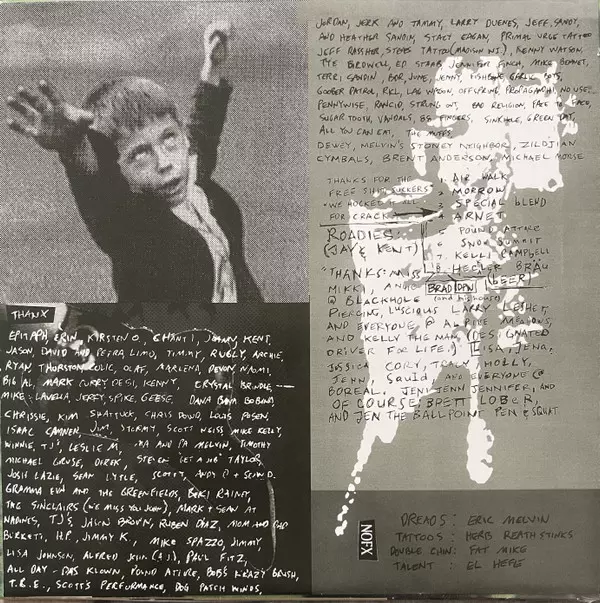 THANX
EPITAPH, ERIN, KIRSTEN O., CHANTI, JOHAN, KENT,
JASON, DAVID AND PETRA LIMO, TIMMY, RUGLY, ARCHIE,
RYAN THORSTON, OLAF, MARLENA, DEVON, NAOMI,
BIG AL, MARK CURRY, DESI, KENNY, CRYSTAL
MIKE LAVELLA, JERRY, SPIKE, GEESE. DANA
CHRISSIE, KIM SHATTUCK, CHRIS DOWD, LOUIS POSEN,
ISAAC CAMNER, JIM, STORMY, SCOTT WEISS, MIKE KELLY,
WINNIE, TJ, LESLIE M, MA AND PA MELVIN, TIMOTHY
MICHAEL GRUSE, DIREK, STEVEN "LET A NO" TAYLOR,
JOSH LAZIE, SEAN LYTLE, SCOTT, ANDY D + SEAN D.
GRAMMA EVH AND THE GREENFIELDS, BEKI RAINEY,
THE SINCLAIRS (WE MISS YOU JOHN), MARK + SEAN AT
NADINES, TJ'S JASON BROWN, RUBEN DIAZ, MOM AND DAD
BURKETT, H.P, JIMMY K., MIKE SPAZZO, JIMMY,
LISA JOHNSON, ALFRED JOHN (A.J.), PAUL FITZ,
ALL DAY - DAS KLOWN, POUND ATTIRE, BOB'S KRAZY BRUSH,
T.R.E., SCOTT'S PERFORMANCE, DOG PATCH WINOS,
JORDAN, JERK AND TAMMY, LARRY DUENES, JEFF, SANDY,
AND HEATHER SANDIN, STACY EAGAN, PRIMAL URGE TATTOO
JEFF RASSHER, STEVES TATTOO (MADISON WI.), KENNY WATSON,
TYE BIRDWELL, ED STARR, JENNIFER FINCH, MIKE BENNET,
TERRI SANDIN, BOB, JUNE, JENNY, FISHBONE GIRLZ, POTS,
GOOBER PATROL, RKL, LAG WAGON, OFFSPRING, PROPAGANDHI, NO USE..
PENNYWISE, RANCID, STRUNG OUT, BAD RELIGION, FACE TO FACE,
SUGAR TOOTH, VANDALS, BG FINGERS, SINKHOLE, GREEN DAY,
ALL YOU CAN EAT, THE MUFFS
DEWEY, MELVIN'S STONEY NEIGHBOR, ZILDJIAN
CYMBALS, BRENT ANDERSON, MICHAEL MORSE
THANKS FOR THE
FREE SHIT, SUCKERS
*WE HOCKED IT ALL
FOR CRACK
1 AIR WALK
2 MORROW
3 SPECIAL BLEND
4 ARNET
5 POUND ATTIRE
6 SNOW SUMMIT
7 KELLI CAMPBELL
8 HEFTER BRÄU
(BEER)
ROADIES:
(JAY & KENT)
"THANKS: MISS
MIKKI, AND BRAD DPN
@ BLACKHOLE (and his house)
PIERCING, LUSCIOUS LARRY LESHET,
AND EVERYONE @ ALPINE MEADOWS,
AND KELLY THE MAN (DESIGNATED
DRIVER FOR LIFE) LISA, JENA,
JESSICA CORLY, TRACY, HOLLY,
JENN SQUID AND EVERYONE @
BOREAL, JENI, JENN, JENNIFER, AND
OF COURSE, BRETT LOBER,
AND JEN THE BALLPOINT PEN & SQUAT
NOFX
DREADS: ERIC MELVIN
TATTOOS: HERB REATHSTINKS
DOUBLE CHIN: FAT MIKE
TALENT: EL HEFE